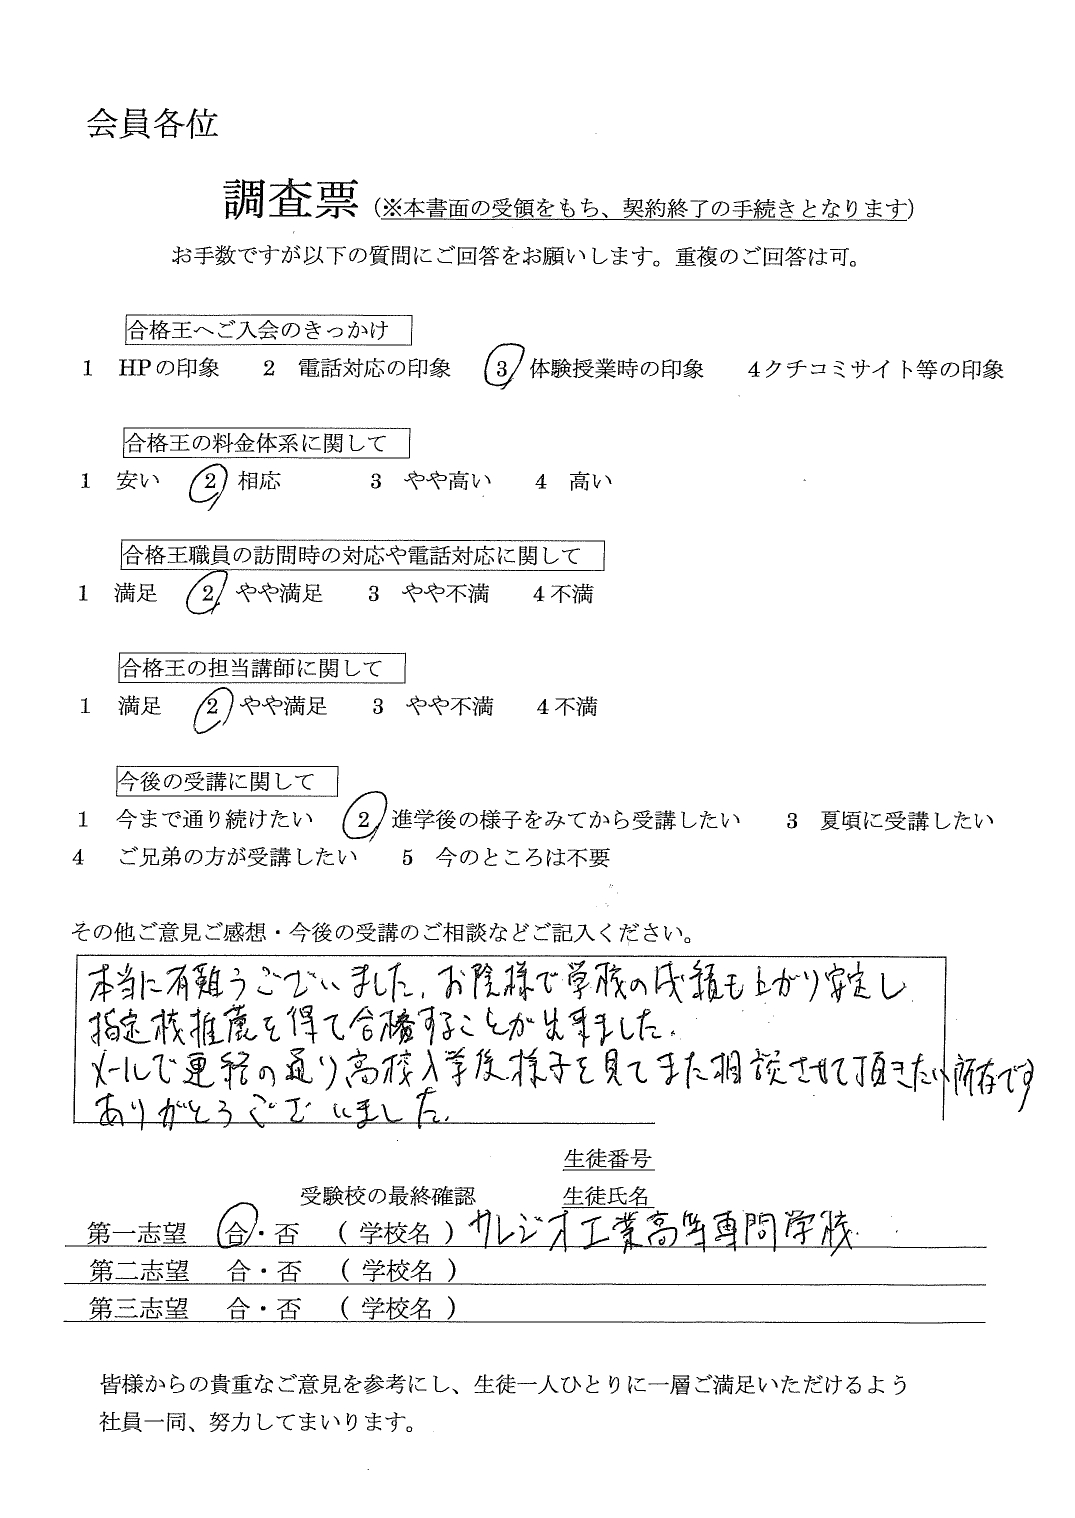 会員各位
調査票（※本書面の受領をもち、契約終了の手続きとなります）
お手数ですが以下の質問にご回答をお願いします。重複のご回答は可。
合格王へご入会のきっかけ
1 HPの印象 2 電話対応の印象 3 体験授業時の印象 4クチコミサイト等の印象
合格王の料金体系に関して
1 安い 2 相応 3 やや高い 4 高い
合格王職員の訪問時の対応や電話対応に関して
1 満足 2 やや満足 3 やや不満 4不満
合格王の担当講師に関して
1 満足 2 やや満足 3 やや不満 4不満
今後の受講に関して
1 今まで通り続けたい 2 進学後の様子をみてから受講したい 3 夏頃に受講したい
4 ご兄弟の方が受講したい 5 今のところは不要
その他ご意見ご感想・今後の受講のご相談などご記入ください。
本当に有難うございました。お陰様で学校の成績も上がり安定し
指定校推薦を得て合格することが出来ました。
メールで連絡の通り高校入学後様子を見てまた相談させて頂きたい所存です
ありがとうございました。
生徒番号
受験校の最終確認 生徒氏名
第一志望 合・否 （学校名）サレジオ工業高等専門学校
第二志望 合・否 （学校名）
第三志望 合・否 （学校名）
皆様からの貴重なご意見を参考にし、生徒一人ひとりに一層ご満足いただけるよう
社員一同、努力してまいります。